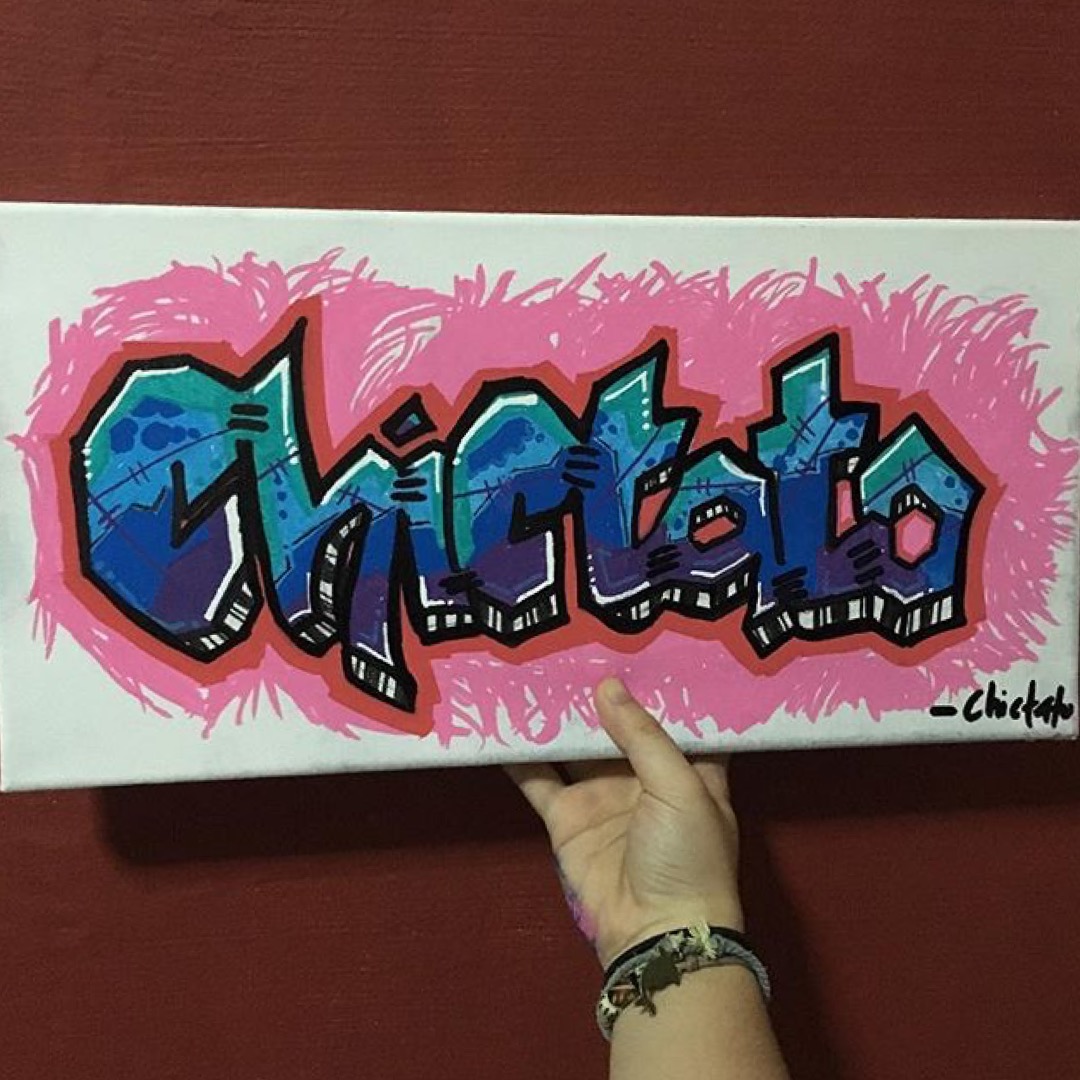 Chictato
- Chictato